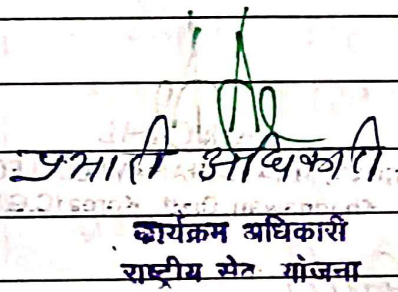 प्रभारी अधिकारी
कार्यक्रम अधिकारी
राष्ट्रीय सेवा योजना